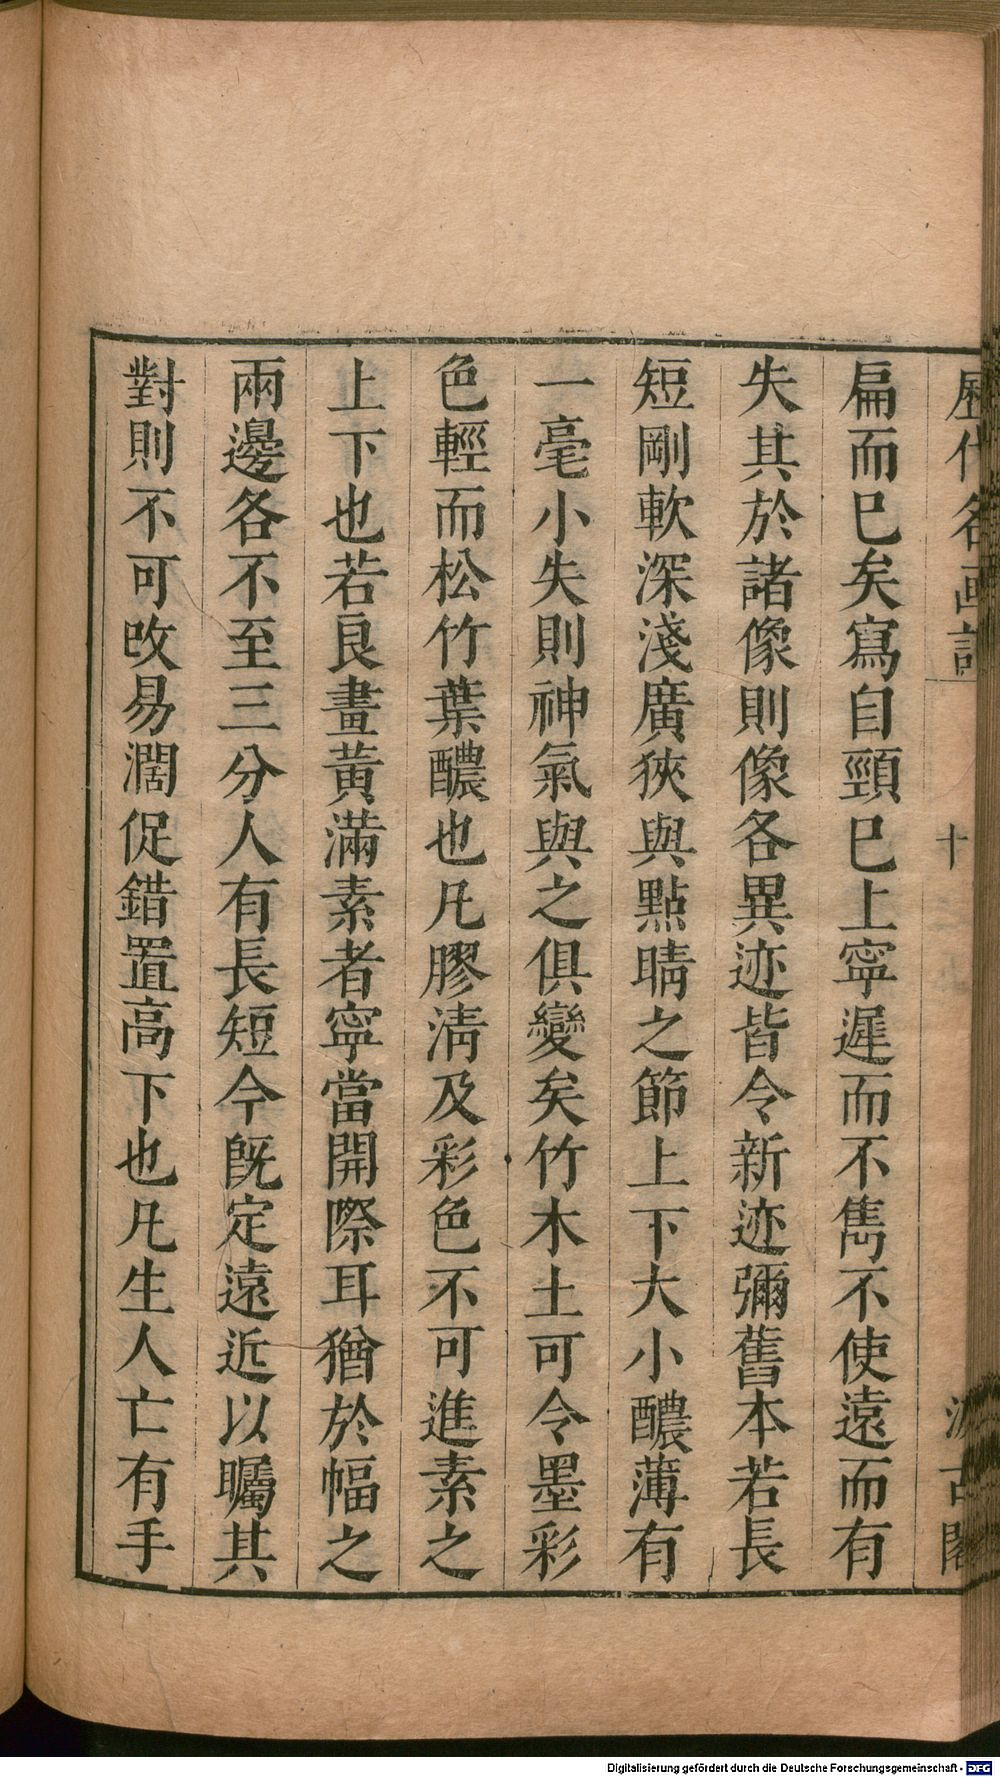 歷代名画記 十 汲古閣
扁而巳矣寫自頸巳上寧遲而不雋不使遠而有
失其於諸像則像各異迹皆令新迹彌舊本若長
短剛軟深淺廣狹與點睛之節上下大小醲薄有
一毫小失則神氣與之俱變矣竹木土可令墨彩
色輕而松竹葉醲也凡膠清及彩色不可進素之
上下也若良畫黃滿素者寧當開際耳猶於幅之
兩邊各不至三分人有長短今旣定遠近以矚其
對則不可改易濶促錯置高下也凡生人亡有手
Digitalisierung gefördert durch die Deutsche Forschungsgemeinschaft - DFG